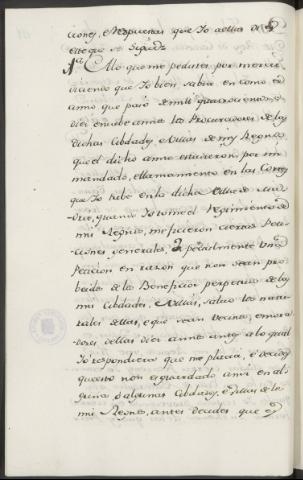 ciones, e Respuestas que Yo a ellas di es
este que se sigue
1.a A lo que me pedistes por merced
diciendo que Yo bien sabia en como el
año que pasó de mil quatrocientos
diez e nuebe annos los Procuradores de las
dichas Cibdades, e Villas de mis Regnos
que el dicho anno estuvieron por mi
mandado, e llamamiento en las Cortes
que Yo hobe en la dicha Villa de Ma-
drid, quando Yo tomé el Regimiento de
mis Regnos, me ficieron ciertas Peti-
ciones generales, e especialmente una
Peticion en razon que non sean pro-
beidos de los Beneficios perpetuos de las
mis Cibdades, e Villas, salvo los natu-
rales dellas, e que sean vecinos, e mora-
dores dellas diez annos antes a lo qual
Yo respondiera que me placia, e decides
que esto non es guardado ansi en al-
gunas e algunas Cibdades, e Villas de los
mis Regnos, antes decides que es